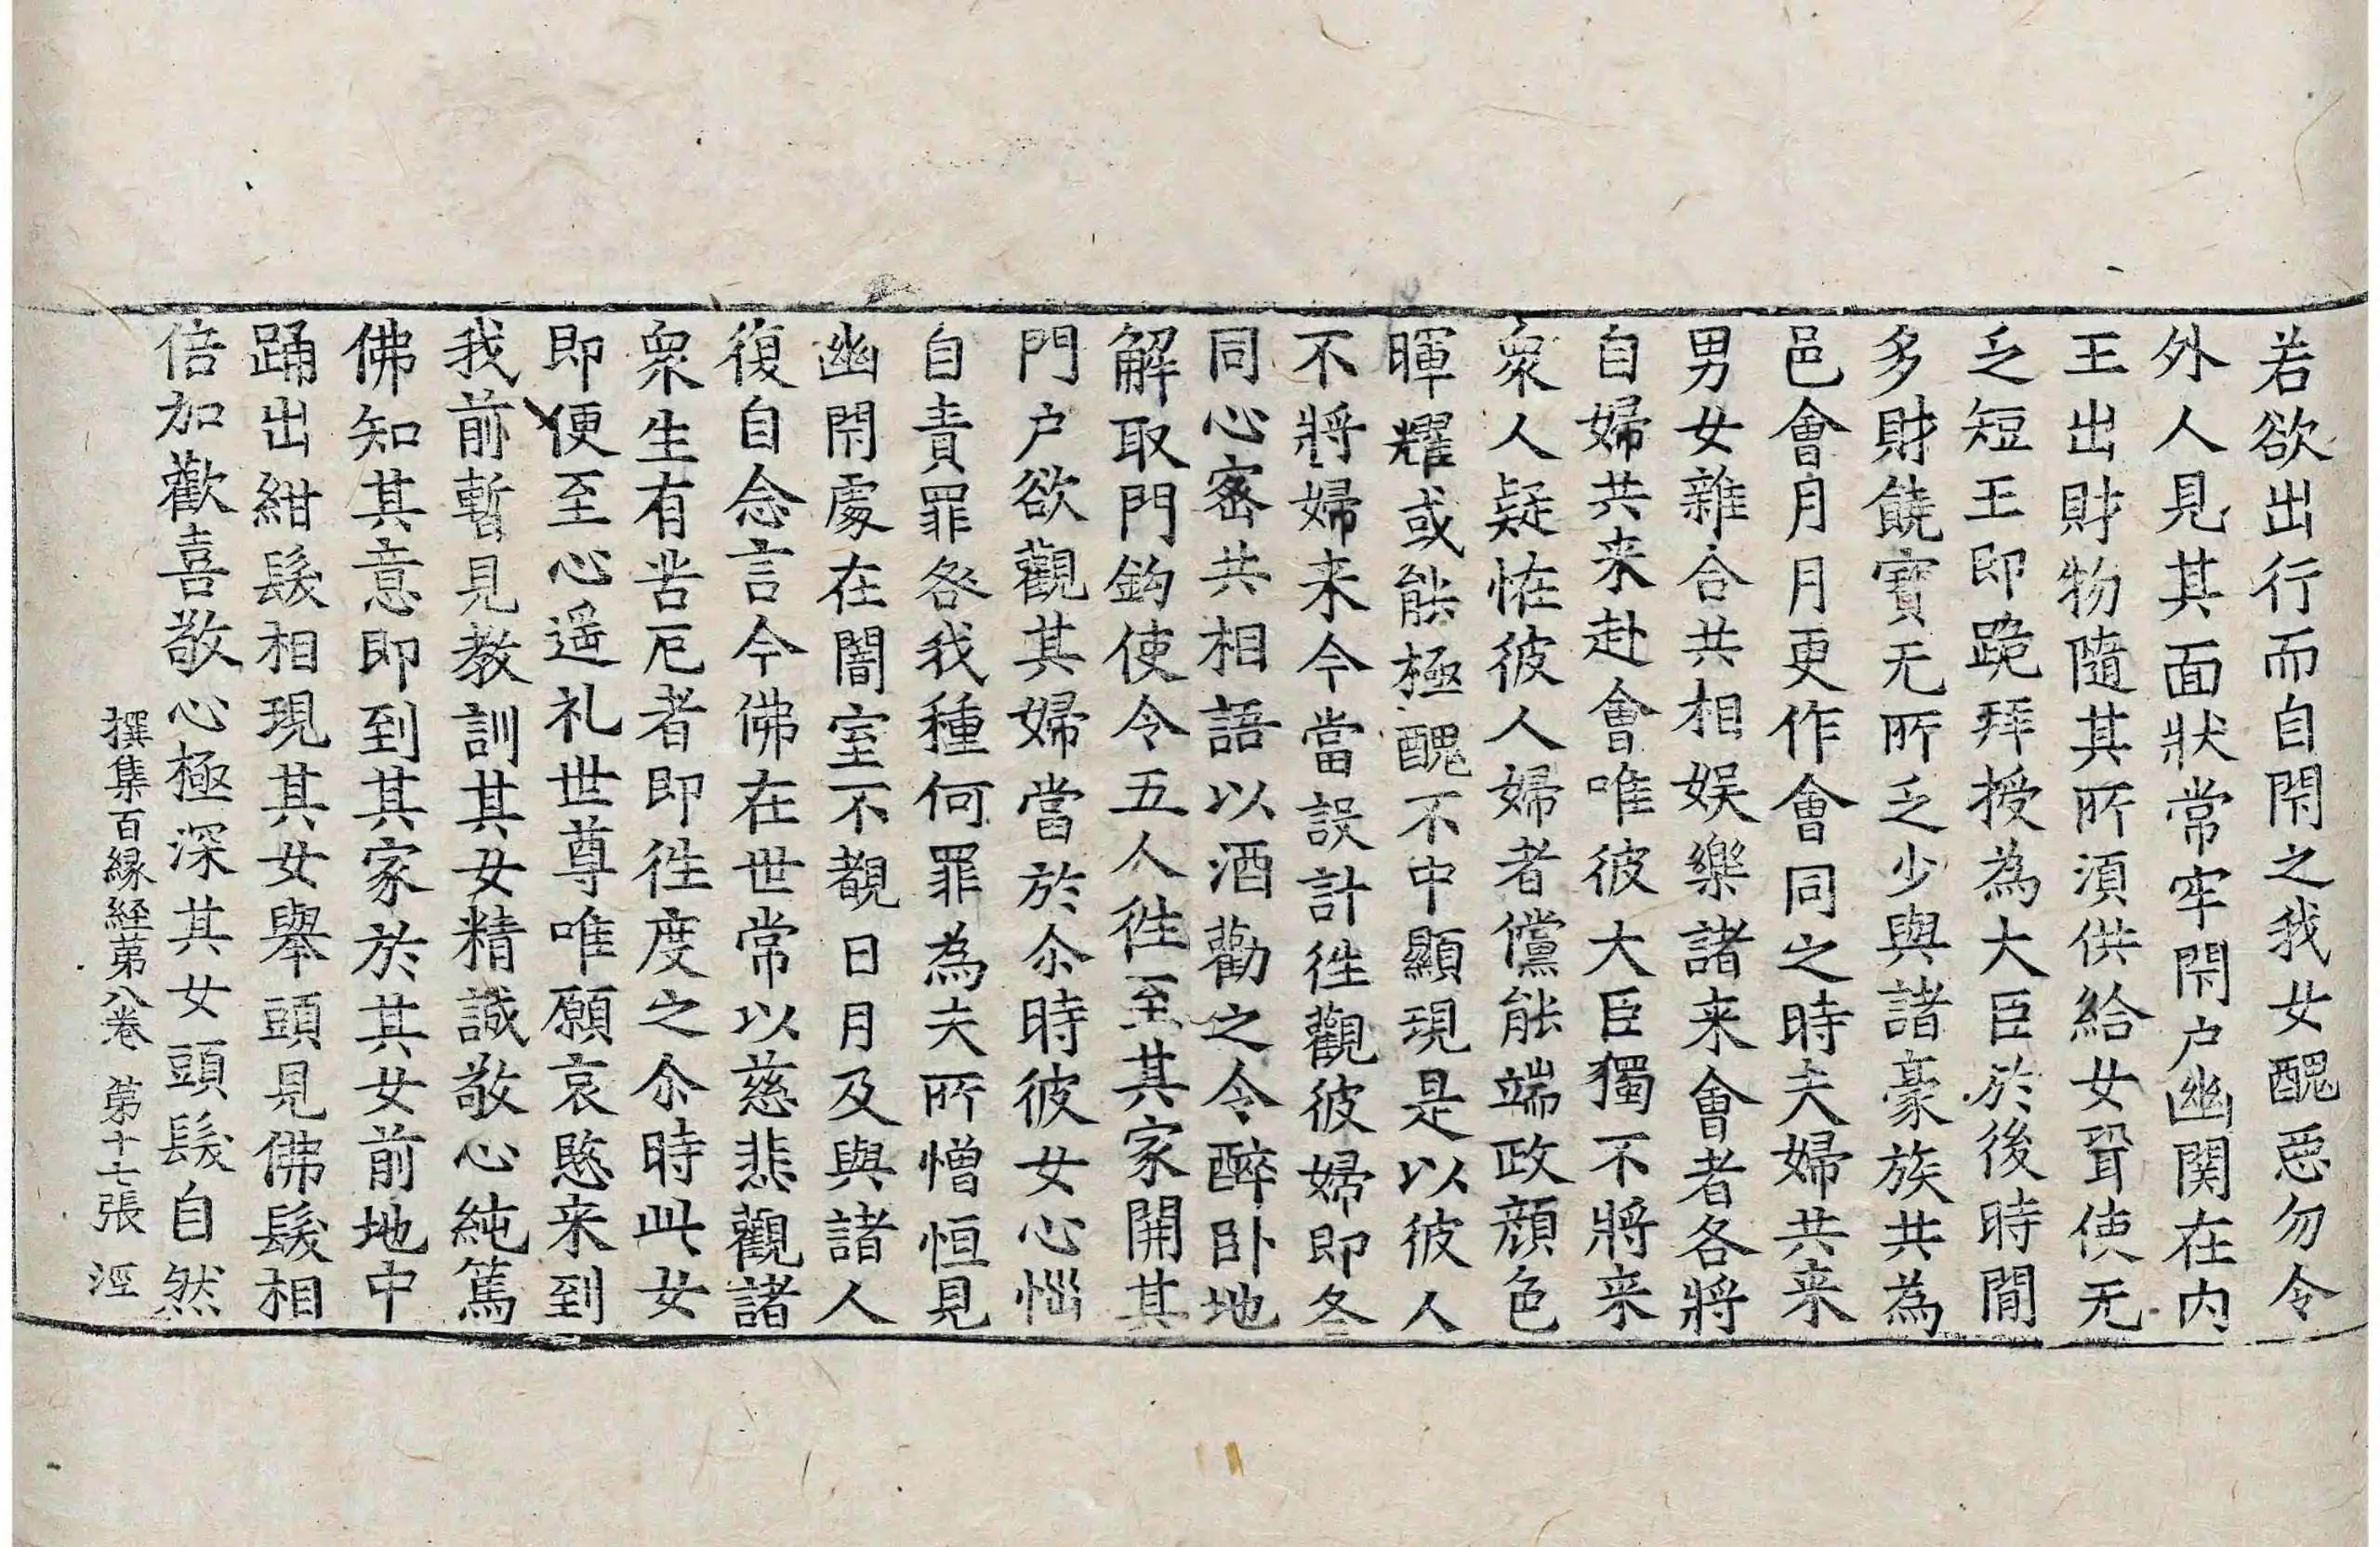 若欲出行而自閇之我女醜惡勿令
外人見其面狀常牢閇户幽関在内
王出財物隨其所湏供給女聟使无
乏短王即跪拜授為大臣於後時閒
多財饒寳无所乏少與諸豪族共為
邑會月月更作會同之時夫婦共来
男女雜合共相娱樂諸来會者各將
自婦共来赴會唯彼大臣獨不將来
衆人疑恠彼人婦者儻能端政顔色
暉耀或能極醜不中顯現是以彼人
不將婦来今當設計徃觀彼婦即各
同心宻共相語以酒勸之令醉卧地
解取門鈎使令五人徃至其家開其
門户欲觀其婦當於尒時彼女心惱
自責罪咎我種何罪為夫所憎恒見
幽閇處在闇室不覩日月及與諸人
復自念言今佛在世常以慈悲觀諸
衆生有苦厄者即徃度之尒時此女
即便至心遥礼世尊唯願哀愍来到
我前暫見教訓其女精誠敬心純篤
佛知其意即到其家於其女前地中
踊出紺髮相現其女舉頭見佛髮相
倍加歡喜敬心極深其女頭髮自然
撰集百縁経第八卷 第十七張 涇